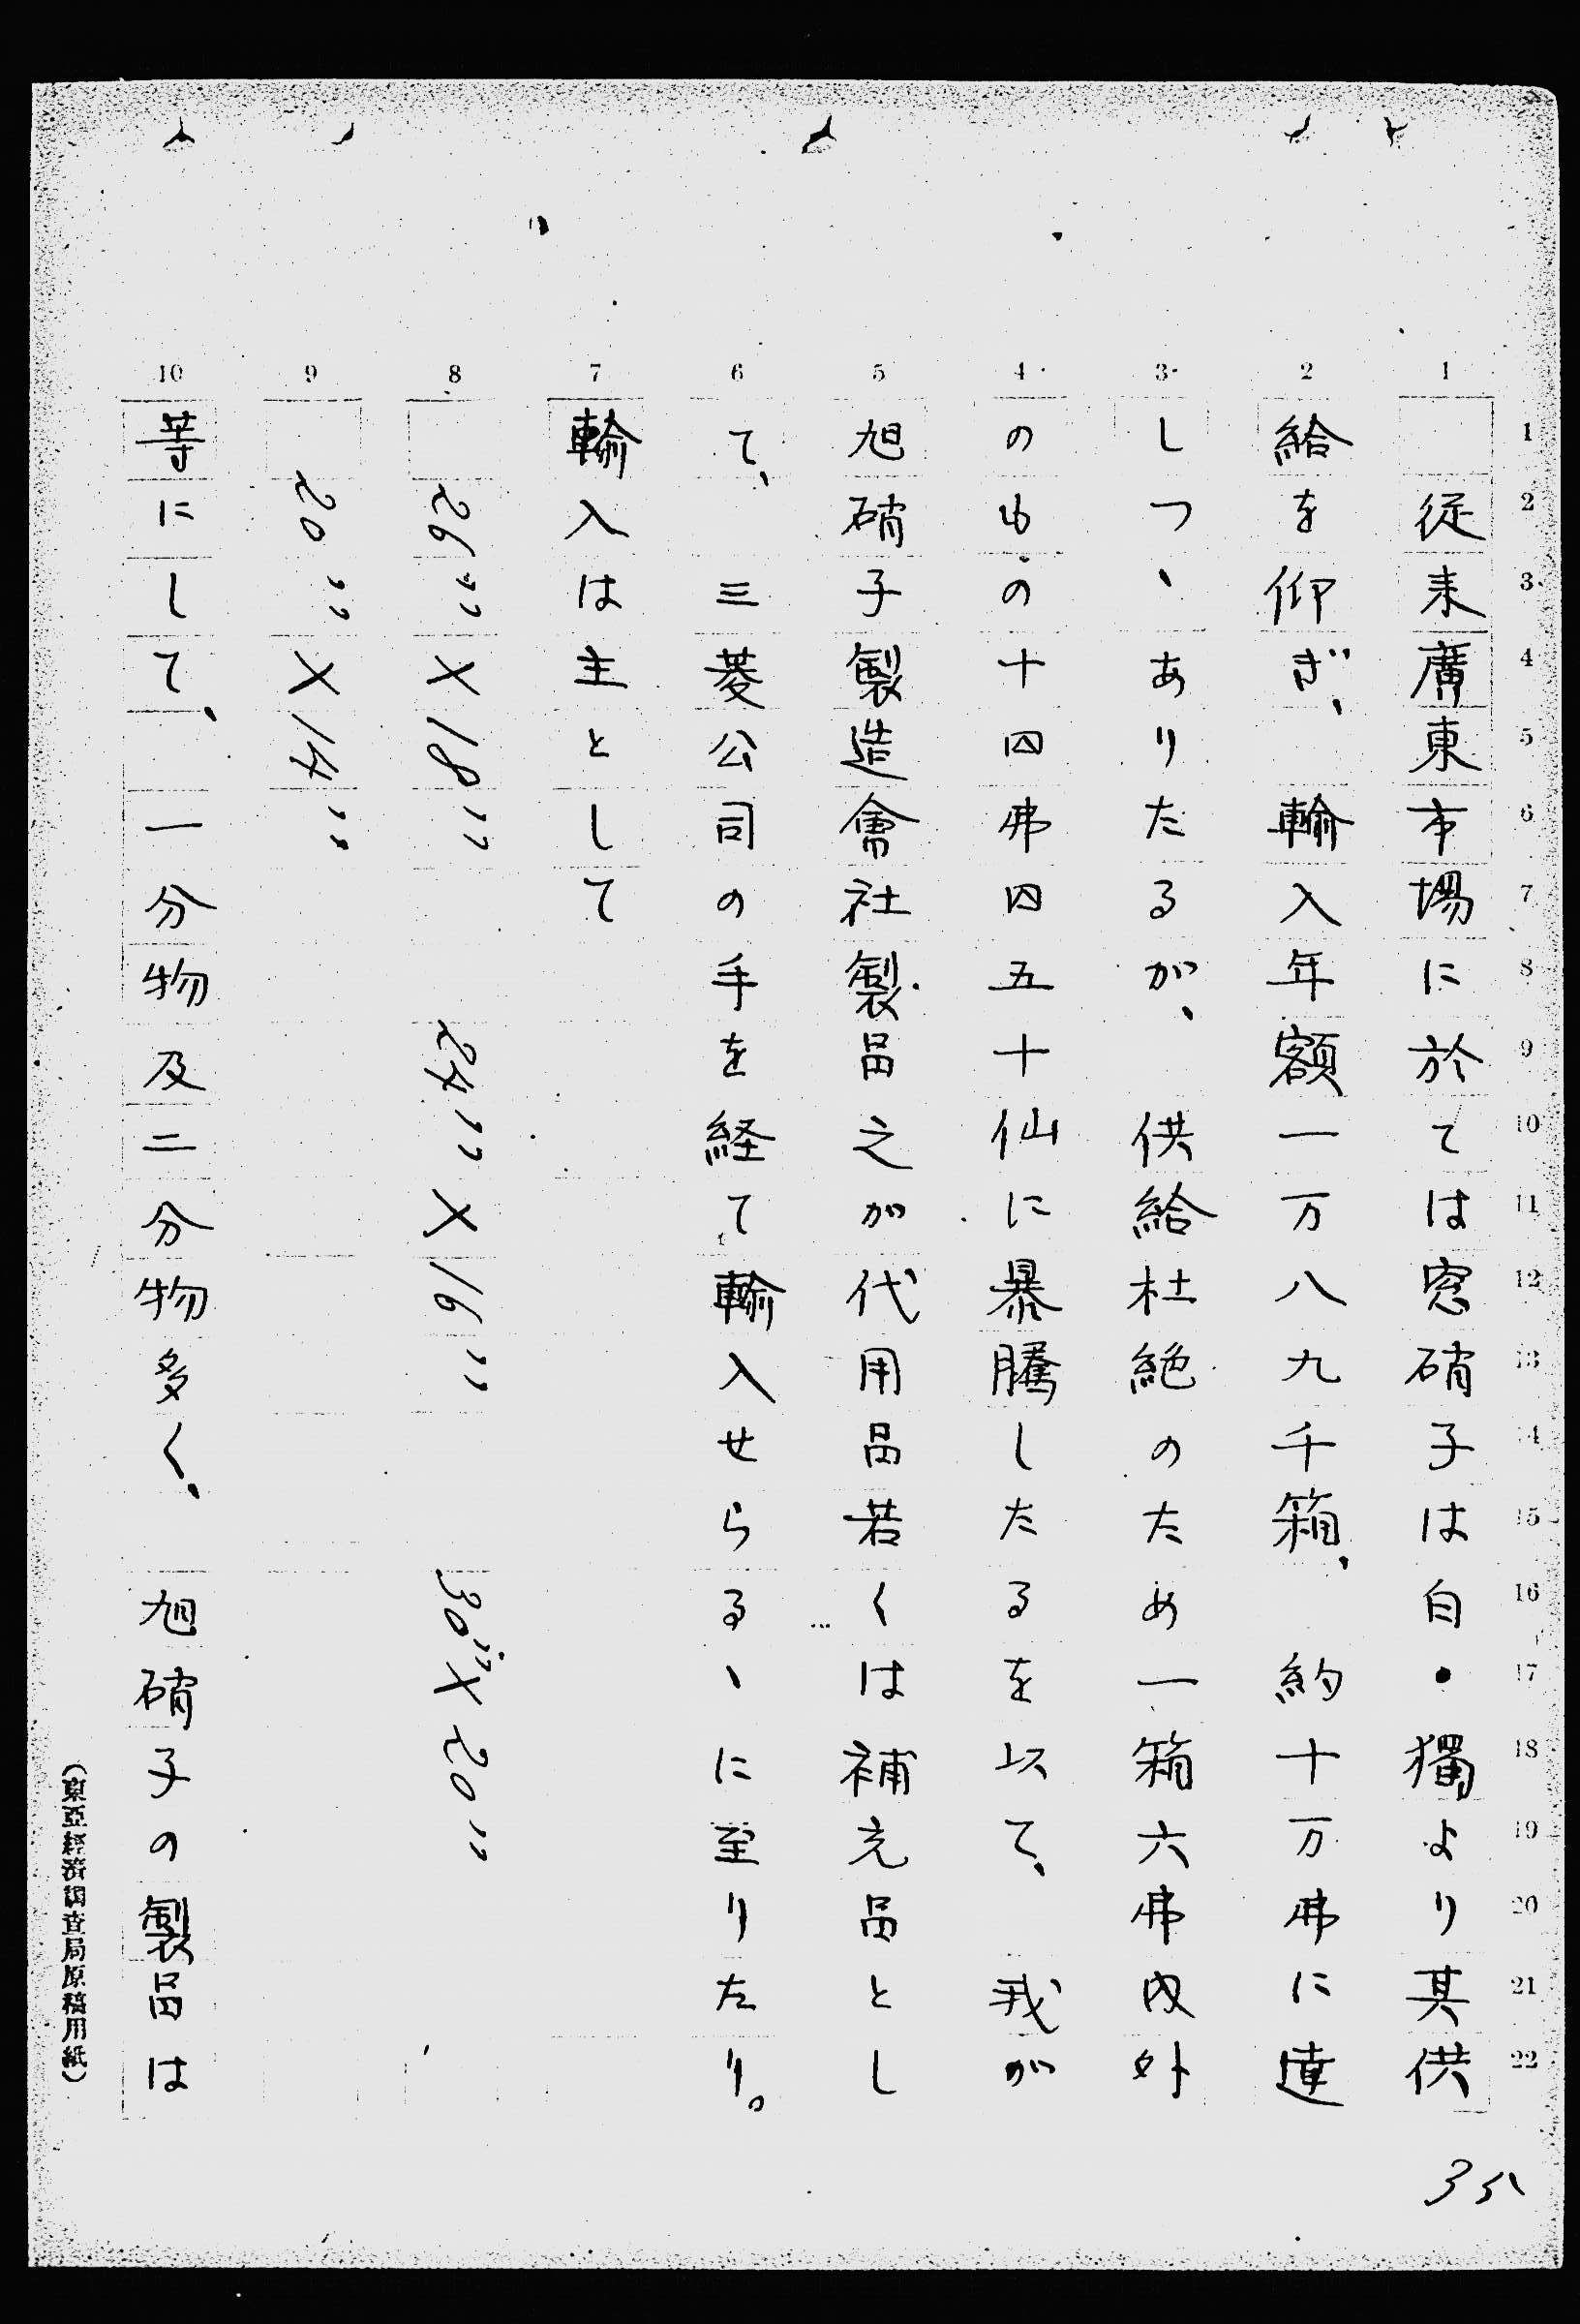 従来廣東市場に於ては窓硝子は白・獨より其供
給を仰ぎ、輸入年額一万八九千箱、約十万弗に達
しつゝありたるが、供給杜絶のため一箱六弗内外
のもの十四弗四五十仙に暴騰したるを以て、我が
旭硝子製造會社製品之が代用品若くは補充品とし
て、三菱公司の手を経て輸入せらるゝに至りたり。
輸入は主として
26"×18" 24"×16" 30"×20"
20"×14"
等にして、一分物及二分物多く、旭硝子の製品は
(東亞經濟調査局原稿用紙)